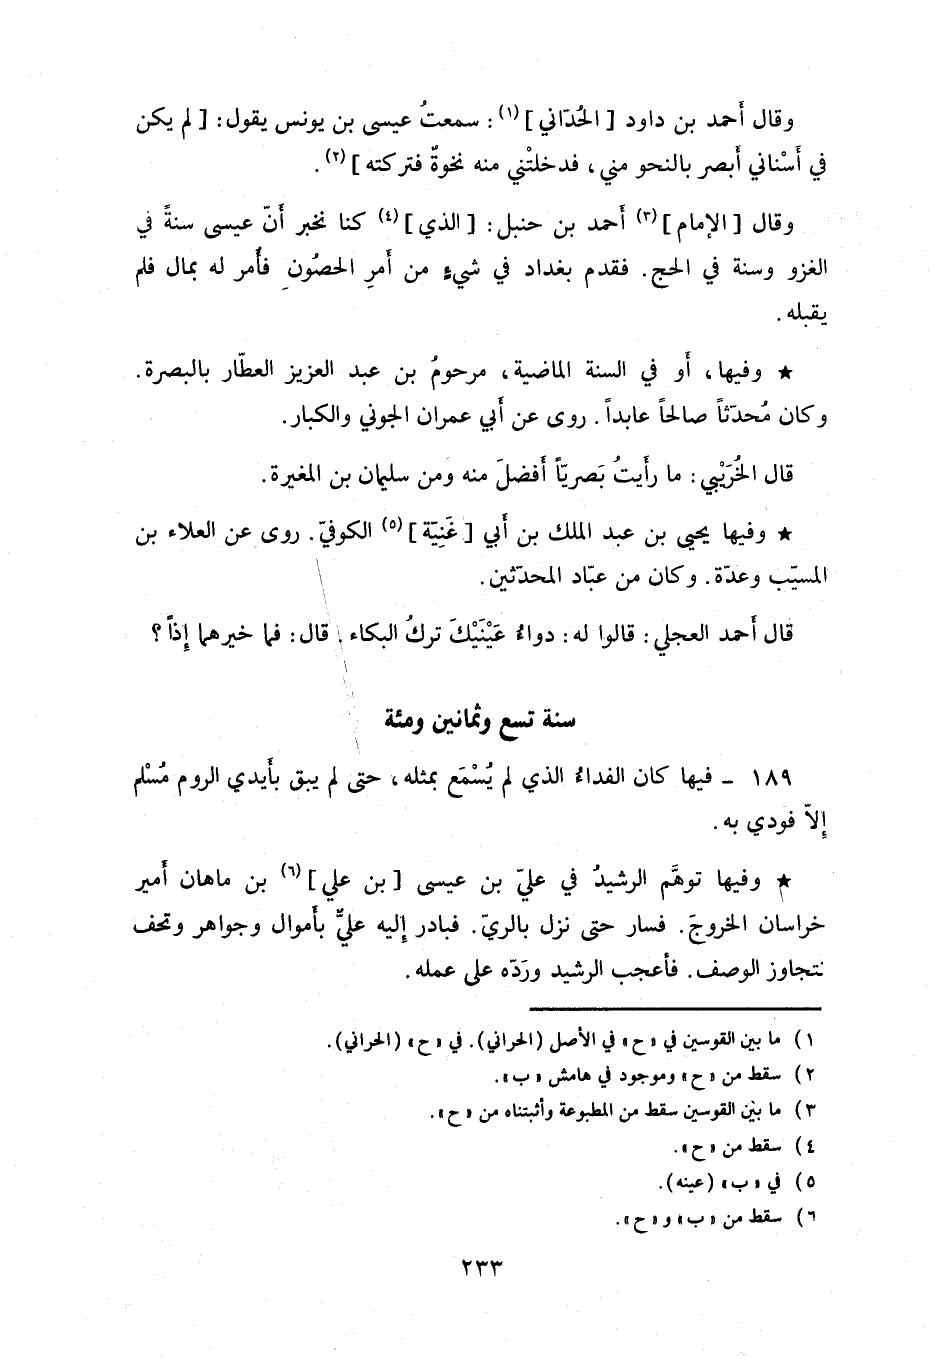 وقال أَحمد بن داود [ الحُدّاني ] (١) : سمعتُ عيسى بن يونس يقول : [ لم يكن
في أَسْناني أَبصر بالنحو مني ، فدخلتْني منه نخوةٌ فتركته ] (٢) .
وقال [ الإمام ] (٣) أَحمد بن حنبل : [ الذي ] (٤) كنا نخبر أَنّ عيسى سنةً في
الغزو وسنة في الحج . فقدم بغداد في شيءٍ من أَمرِ الحصُون فأُمر له بمال فلم
يقبله .
★ وفيها ، أَو في السنة الماضية ، مرحومُ بن عبد العزيز العطّار بالبصرة .
وكان مُحدّثاً صالحاً عابداً . روى عن أَبي عمران الجوني والكبار .
قال الخُرَيْبي : ما رأَيتُ بَصريّاً أَفضلَ منه ومن سليمان بن المغيرة .
★ وفيها يحيى بن عبد الملك بن أَبي [ غَنِيّة ] (٥) الكوفيّ . روى عن العلاء بن
المسيّب وعدّة . وكان من عبّاد المحدّثين .
قال أَحمد العجلي : قالوا له : دواءُ عَيْنَيْكَ تركُ البكاء . قال : فما خيرهما إِذاً ؟
سنة تسع وثمانين ومئة
١٨٩ - فيها كان الفداءُ الذي لم يُسْمَع بمثله ، حتى لم يبق بأَيدي الروم مُسْلم
إِلاّ فودي به .
★ وفيها توهَّم الرشيدُ في عليّ بن عيسى [ بن علي ] (٦) بن ماهان أَمير
خراسان الخروجَ . فسار حتى نزل بالريّ . فبادر إليه عليٌّ بأَموال وجواهر وتحف
تتجاوز الوصف . فأعجب الرشيد وردّه على عمله .
١) ما بين القوسين في « ح » في الأصل (الحراني) . في « ح » (الحراني) .
٢) سقط من « ح » وموجود في هامش « ب » .
٣) ما بين القوسين سقط من المطبوعة وأثبتناه من « ح » .
٤) سقط من « ح » .
٥) في « ب » (عينه) .
٦) سقط من « ب » و « ح » .
٢٣٣